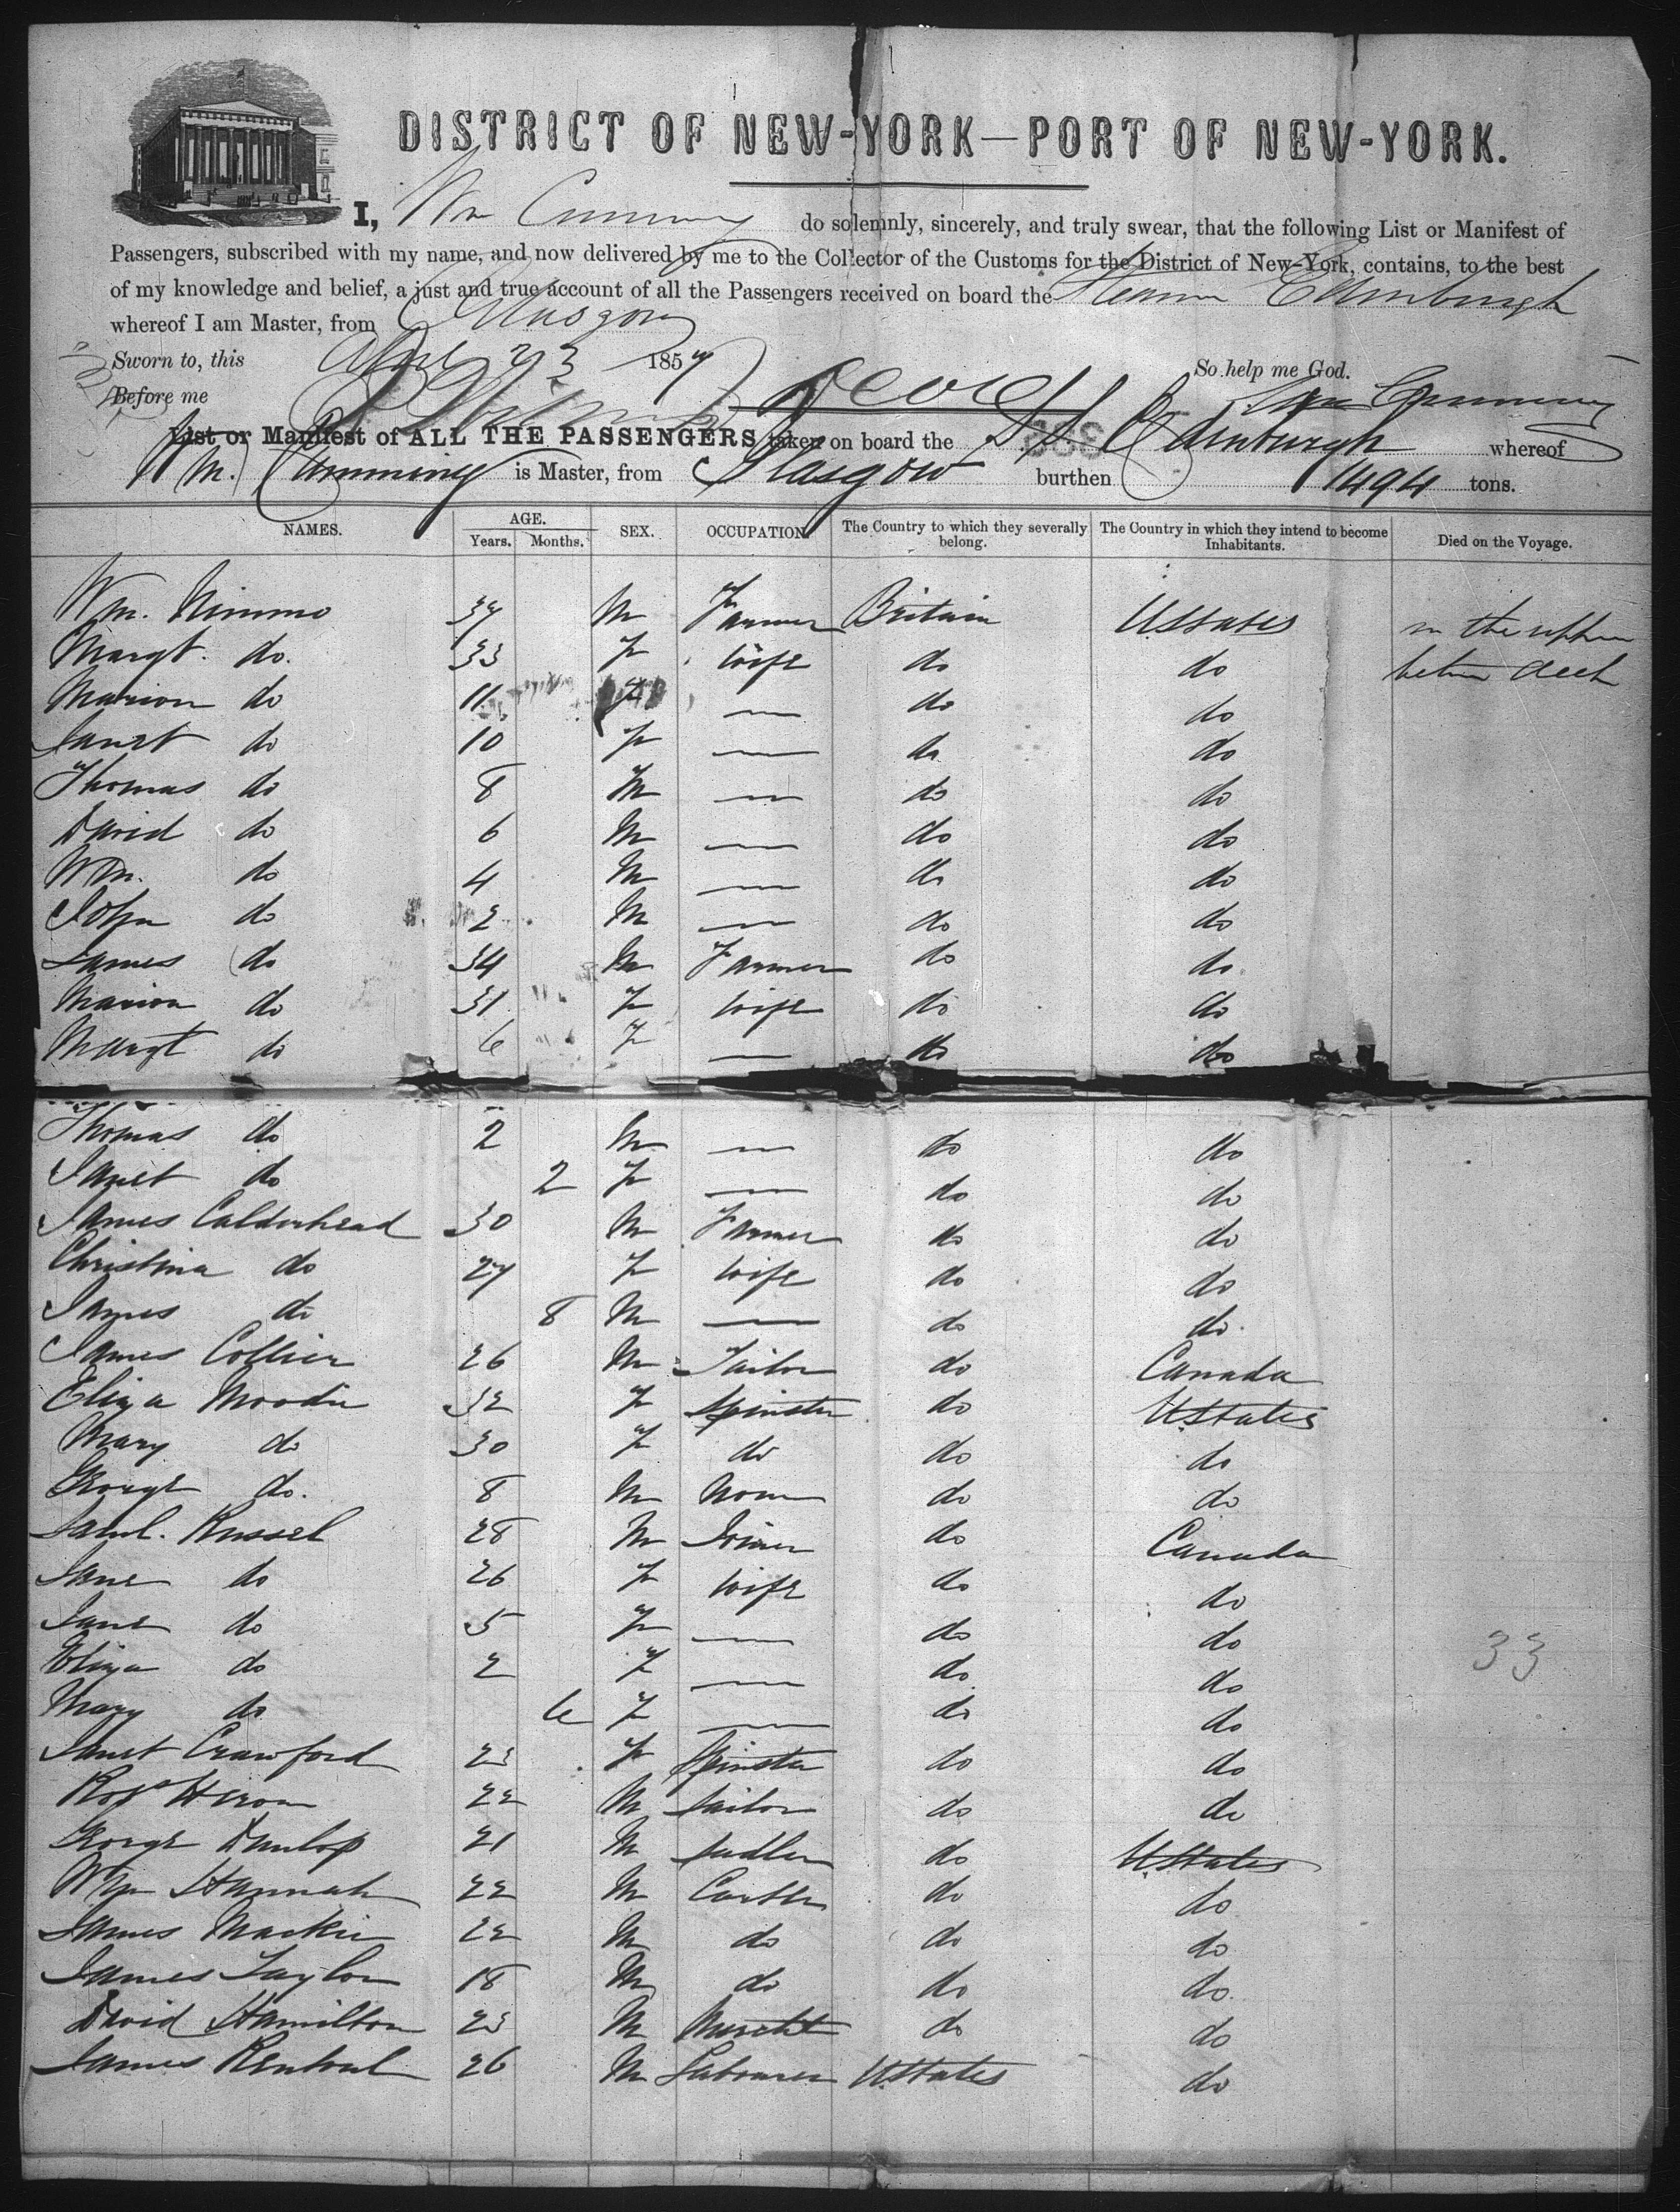 DISTRICT OF NEW-YORK—PORT OF NEW-YORK.
I, Wm Cumming do solemnly, sincerely, and truly swear, that the following List or Manifest of
Passengers, subscribed with my name, and now delivered by me to the Collector of the Customs for the District of New-York, contains, to the best
of my knowledge and belief, a just and true account of all the Passengers received on board the Steamer Edinburgh
whereof I am Master, from Glasgow
Sworn to, this April 23 1857 So help me God.
Before me Wm Cumming
List or Manifest of ALL THE PASSENGERS taken on board the S S. Edinburgh whereof
Wm. Cumming is Master, from Glasgow burthen 1494 tons.
NAMES. AGE. SEX. OCCUPATION. The Country to which they severally belong. The Country in which they intend to become Inhabitants. Died on the Voyage.
Years. Months.
Wm. Nimmo 37 M Farmer Britain UStates in the upper
Margt. do. 33 F wife do do between deck
Marion do 11 F — do do
Janet do 10 F — do do
Thomas do 8 M — do do
David do 6 M — do do
Wm. do 4 M — do do
John do 2 M — do do
James do 34 M Farmer do do
Marion do 31 F wife do do
Margt do 6 F — do do
Thomas do 2 M — do do
Janet do 2 F — do do
James Calderhead 30 M Farmer do do
Christina do 27 F wife do do
James do 8 M — do do
James Collier 26 M Tailor do Canada
Eliza Moodie 32 F Spinster do UStates
Mary do 30 F do do do
George do. 8 M None do do
Saml. Russel 28 M Joiner do Canada
Jane do 26 F wife do do
Jane do 5 F — do do
Eliza do 2 F — do do
33
Mary do 6 F — do do
Janet Crawford 23 F Spinster do do
Robt Heron 22 M Sailor do do
George Dunlop 21 M Sadler do UStates
Wm Hannah 22 M do do
James Mackie 22 M do do do
James Taylor 18 M do do do
David Hamilton 23 M Mercht do do
James Rentoul 26 M Labourer UStates do